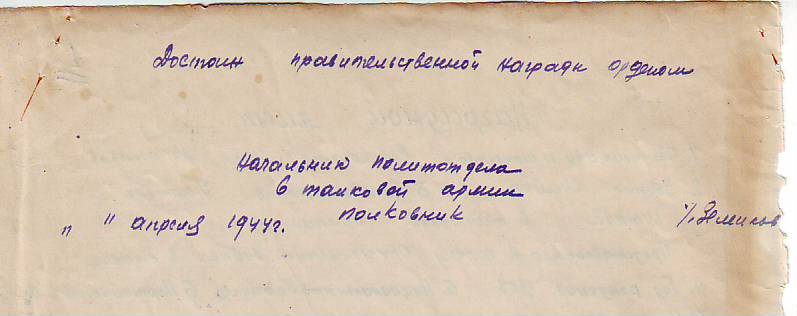 Достоин правительственной награды орденом
Начальник политотдела
6 танковой армии
полковник
" " апреля 1944г.